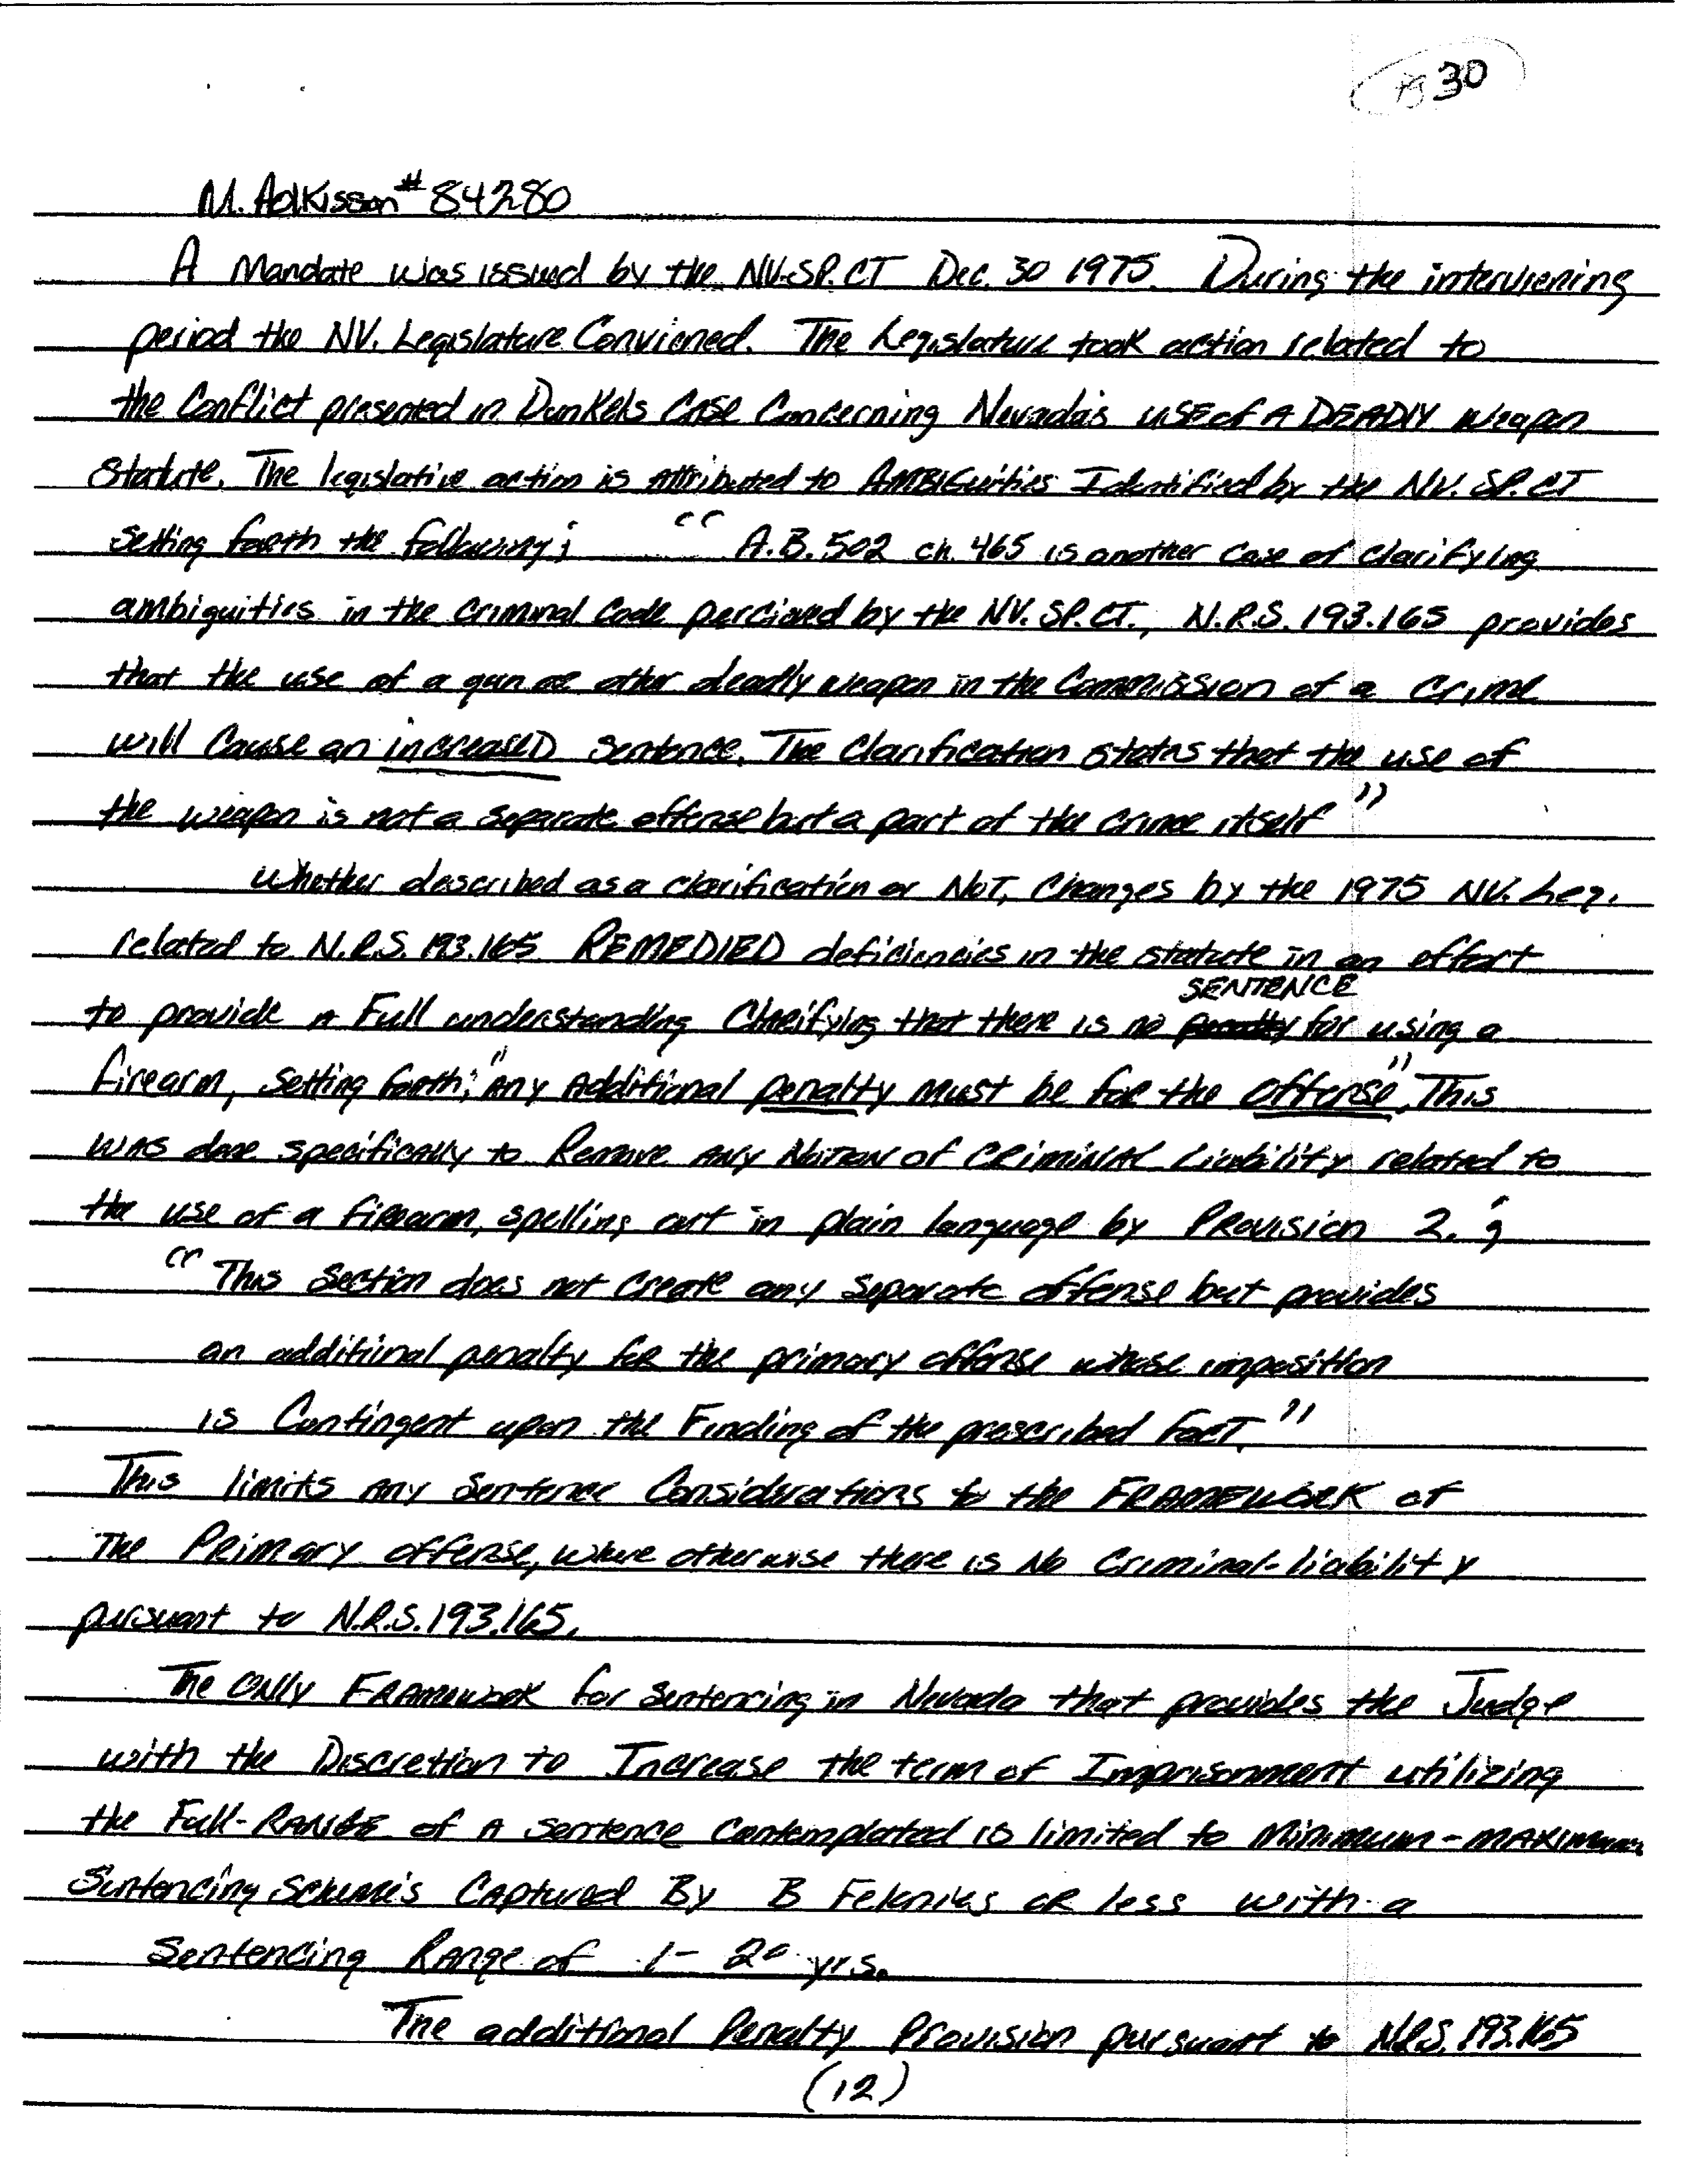 pg 30
M. Adkisson #84280
A Mandate was issued by the NV. SP. CT Dec. 30 1975. During the interviening
period the NV. Legislature Conviened. The Legislature took action related to
the Conflict presented in Dunkels Case Concerning Nevada's USE of A DEADLY Weapon
Statute. The legislative action is Attributed to AMBIGuities Identified by the NV. SP. CT
setting forth the following; " A.B. 502 ch. 465 is another case of clarifying
ambiguities in the Criminal Code percieved by the NV. SP. CT., N.R.S. 193.165 provides
that the use of a gun or other deadly weapon in the Commission of a crime
will Cause an increaseD sentence. The Clarification states that the use of
the weapon is not a separate offense but a part of the crime itself"
Whether described as a clarification or NOT, Changes by the 1975 NV. Leg.
related to N.R.S. 193.165 REMEDIED deficiencies in the statute in an effort
SENTENCE
to provide A Full understanding Clarifying that there is no penalty for using a
firearm, setting forth; "Any Additional penalty must be for the offense". This
was done specifically to Remove Any Notion of CRiMiNAL Liability related to
the use of a firearm, spelling out in plain language by PRovision 2. ;
"This Section does not create any separate offense but provides
an additional penalty for the primary offense whose imposition
is Contingent upon the Finding of the prescribed FacT."
This limits Any Sentence Considerations to the FRAMEWORK of
The PRimary offense, where otherwise there is No Criminal-liability
pursuant to N.R.S. 193.165.
The ONLy FRAMEWORK for Sentencing in Nevada that provides the Judge
with the Discretion to Increase the term of Imprisonment utilizing
the Full-RANGE of A sentence Contemplated is limited to MiNiMum-MAXIMum
Sentencing Scheme's CAPtured By B Felonies OR less with a
Sentencing RANge of 1-20 yrs.
The additional Penalty PRovision pursuant to N.R.S. 193.165
(12)